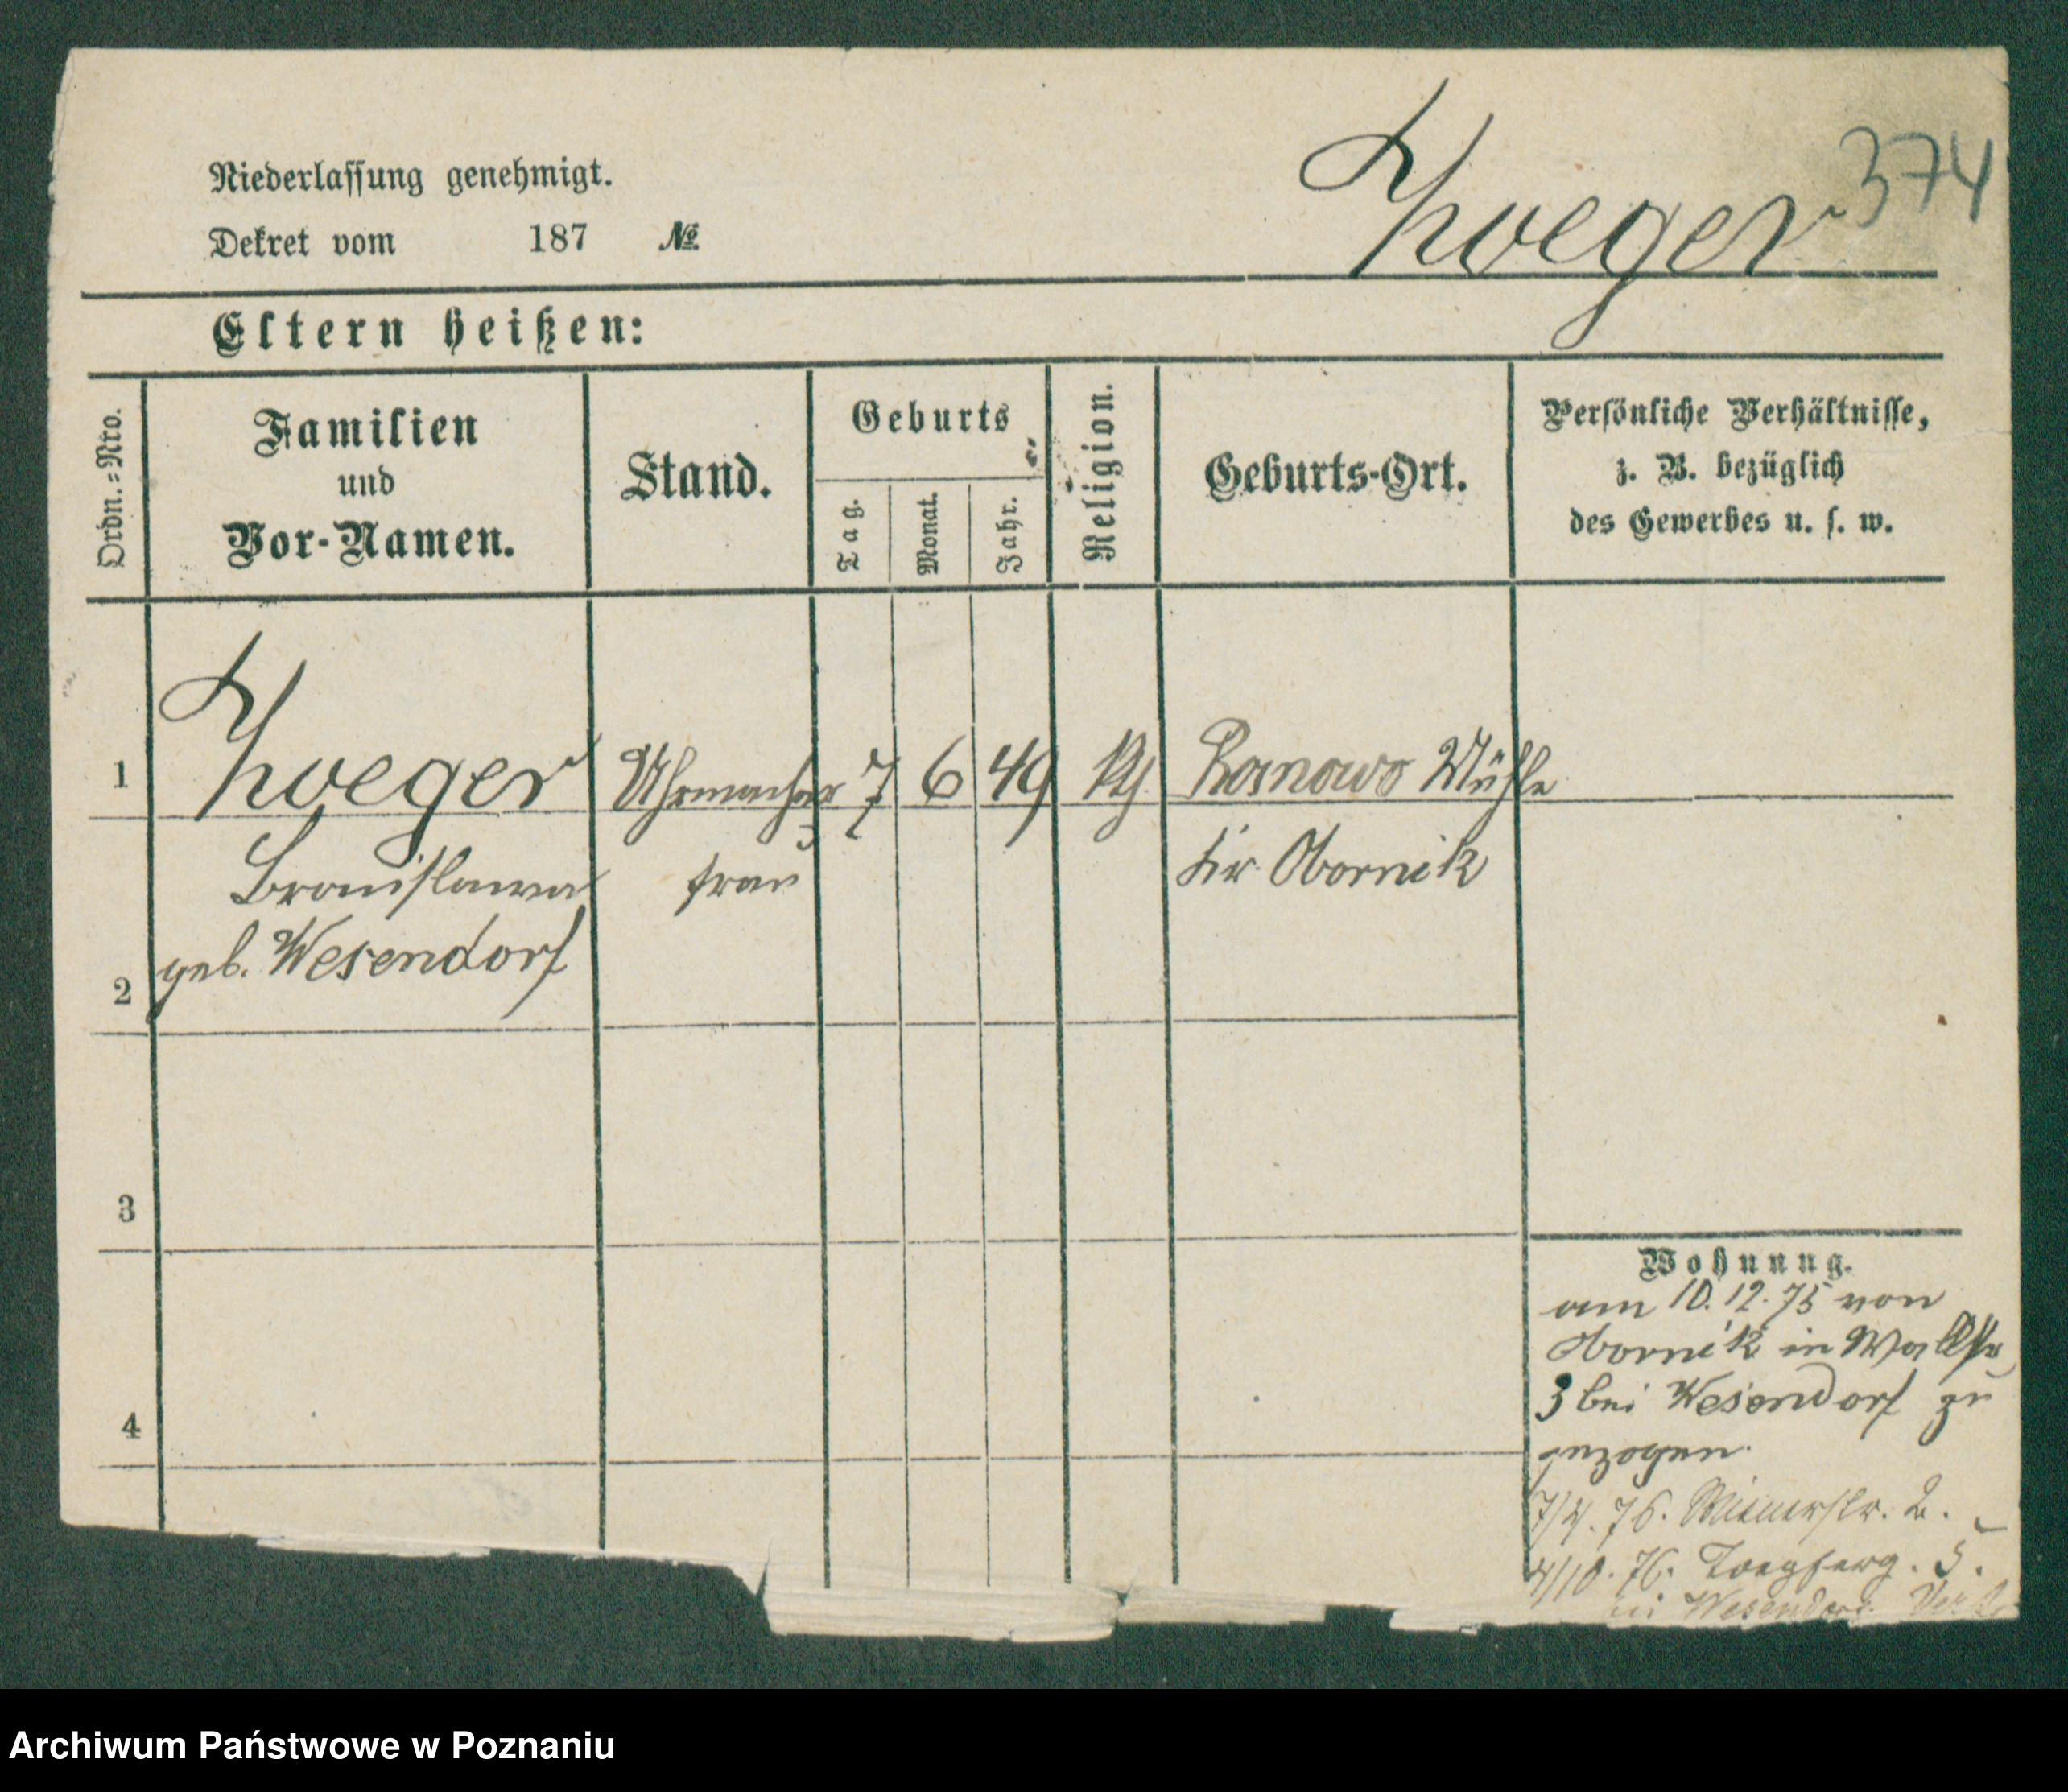 374
Niederlassung genehmigt.
Dekret vom 187 №
Eltern heißen:
Ordn.=Nro.
Familien
und
Vor-Namen.
Stand.
Geburts
Tag.
Monat.
Jahr.
Religion.
Geburts-Ort.
Persönliche Verhältnisse,
z. B. bezüglich
des Gewerbes u. s. w.
1
Uhrmacher 7 6 49 kth Mühle
Bronislawa frau Kr. Obornik
geb. Wesendorf
2
3
4
Wohnung.
am 10. 12. 75 von
Obornik in Wallstr
3 bei Wesendorf zu
gezogen.
7/4. 76. 2.
4/10. 76. 5.
bei Wesendorf.
Archiwum Państwowe w Poznaniu